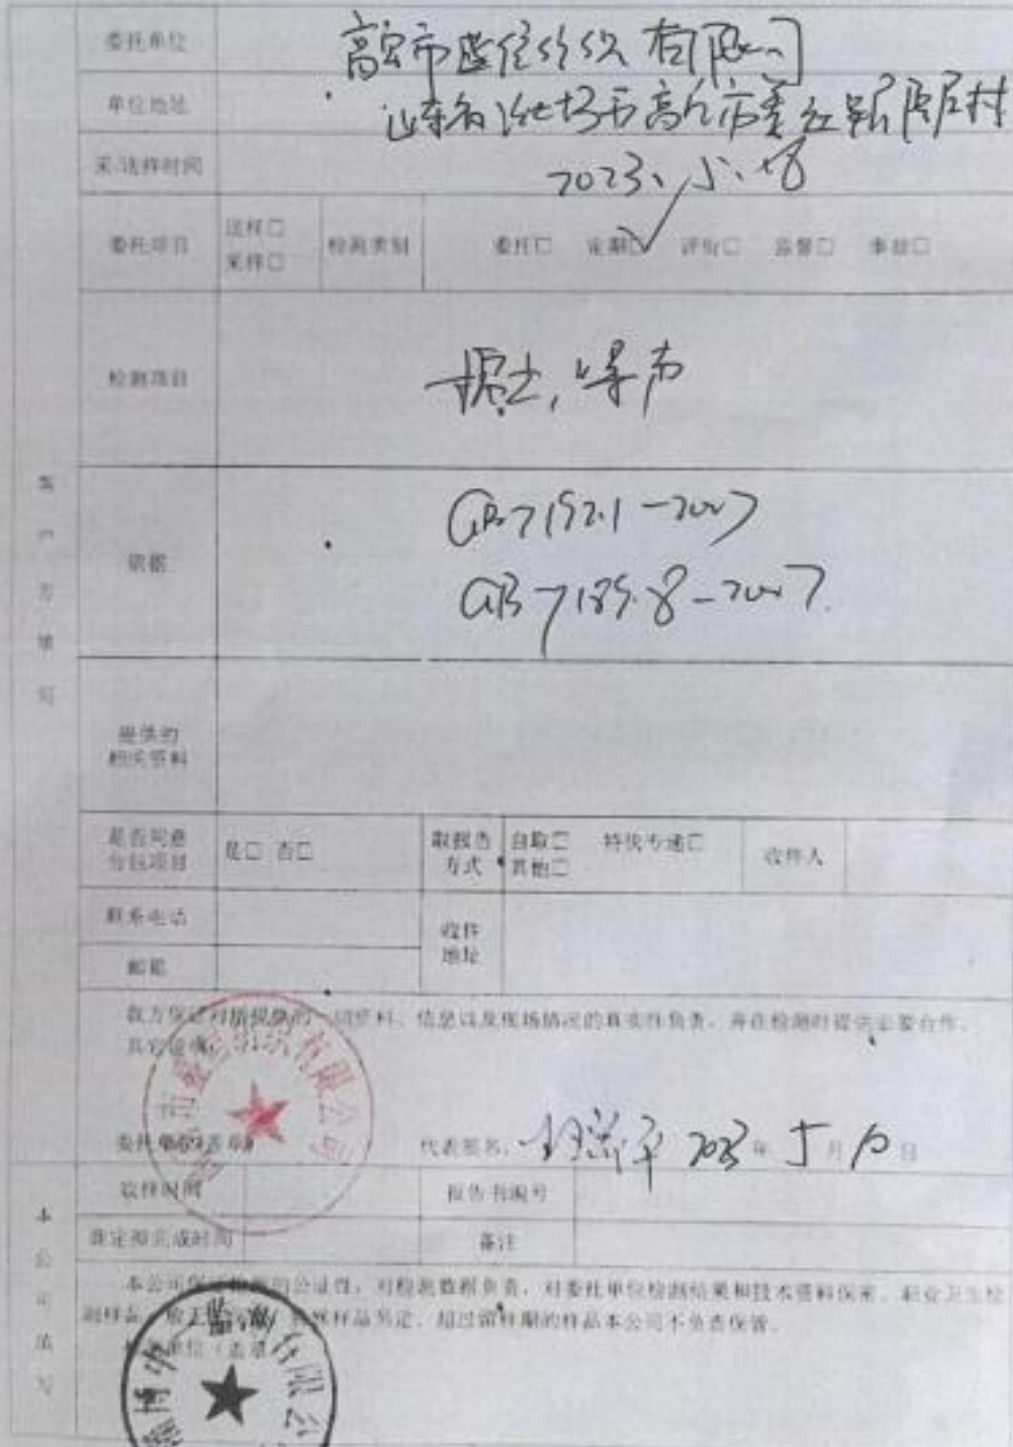 委托单位
高密市 纺织有限公司
单位地址
山东省潍坊市高密市 村
采/送样时间
2023、5、
委托项目
送样□
采样□
检测类别
委托□ 定期□✓ 评价□ 监督□ 事故□
检测项目
噪声
委 托 方 填 写
依据
GBZ192.1-2007
GBZ189.8-2007
提供的
相关资料
是否同意
分包项目
是□ 否□
取报告
方式
自取□ 特快专递□
其他□
收件人
联系电话
邮箱
收件
地址
我方保证对所提供的一切资料、信息以及现场情况的真实性负责，并在检测时提供必要合作。
其它说明：
有限公司
委托单位（盖章）
代表签名： 2023年5月10日
本 公 司 填 写
收样时间
报告书编号
商定和完成时间
备注
本公司保证检测的公证性，对检测数据负责，对委托单位检测结果和技术资料保密。职业卫生检
测样品 样品另定，超过留样期的样品本公司不负责保管。
单位（盖章）
淄博 有限公